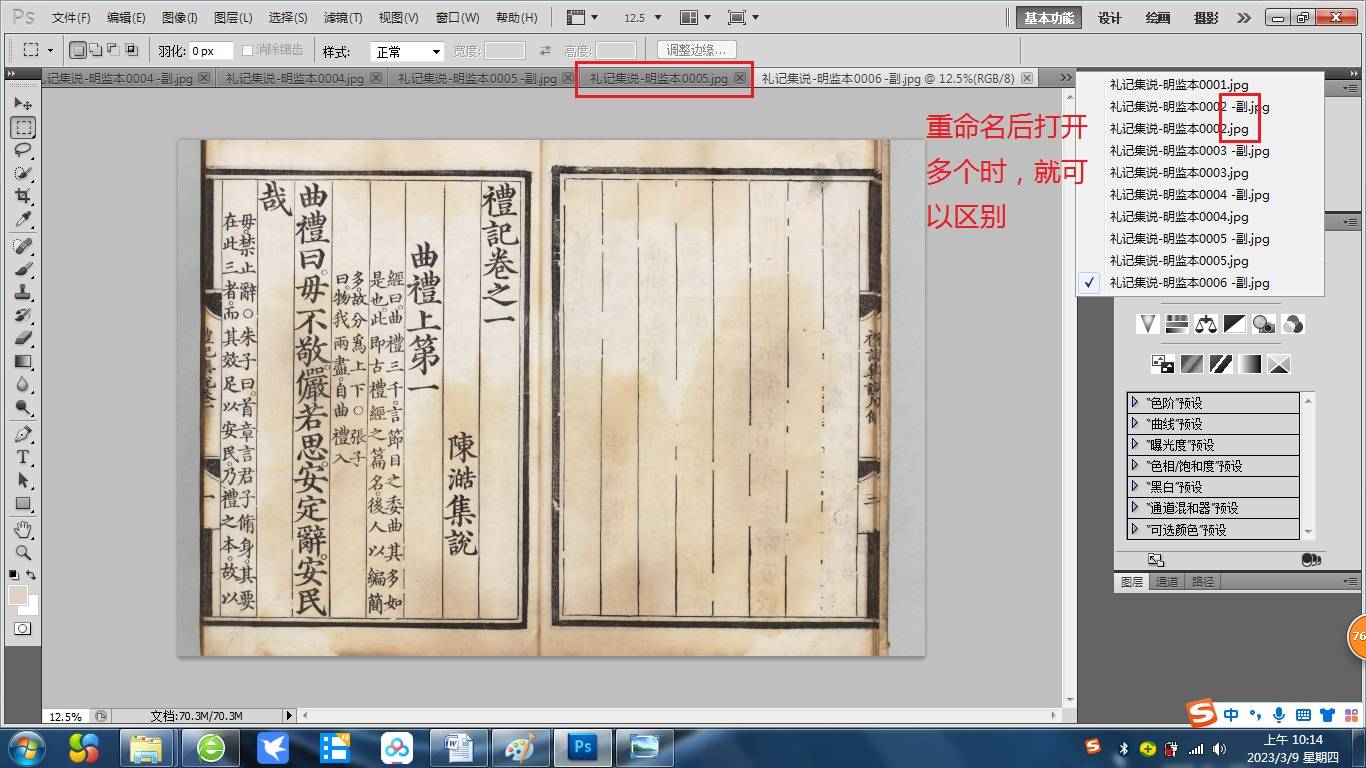 Ps 文件(F) 编辑(E) 图像(I) 图层(L) 选择(S) 滤镜(T) 视图(V) 窗口(W) 帮助(H) 12.5 基本功能 设计 绘画 摄影
羽化: 0 px 消除锯齿 样式: 正常 宽度: 高度: 调整边缘...
礼记集说-明监本0004 -副.jpg 礼记集说-明监本0004.jpg 礼记集说-明监本0005 -副.jpg 礼记集说-明监本0005.jpg 礼记集说-明监本0006 -副.jpg @ 12.5%(RGB/8)
礼记集说-明监本0001.jpg
礼记集说-明监本0002 -副.jpg
礼记集说-明监本0002.jpg
礼记集说-明监本0003 -副.jpg
礼记集说-明监本0003.jpg
礼记集说-明监本0004 -副.jpg
礼记集说-明监本0004.jpg
礼记集说-明监本0005 -副.jpg
礼记集说-明监本0005.jpg
礼记集说-明监本0006 -副.jpg
重命名后打开
多个时，就可
以区别
禮記卷之一
陳澔集說
曲禮上第一
經曰曲禮三千言節目之委曲其多如
是也此即古禮經之篇名後人以編簡
多故分爲上下○張子
曰物我兩盡自曲禮入
曲禮曰毋不敬儼若思安定辭安民
哉
毋禁止辭○朱子曰首章言君子脩身其要
在此三者而其效足以安民乃禮之本故以
"色阶"预设
"曲线"预设
"曝光度"预设
"色相/饱和度"预设
"黑白"预设
"通道混和器"预设
"可选颜色"预设
图层 通道 路径
76
12.5% 文档:70.3M/70.3M
中
Ps
上午 10:14
2023/3/9 星期四